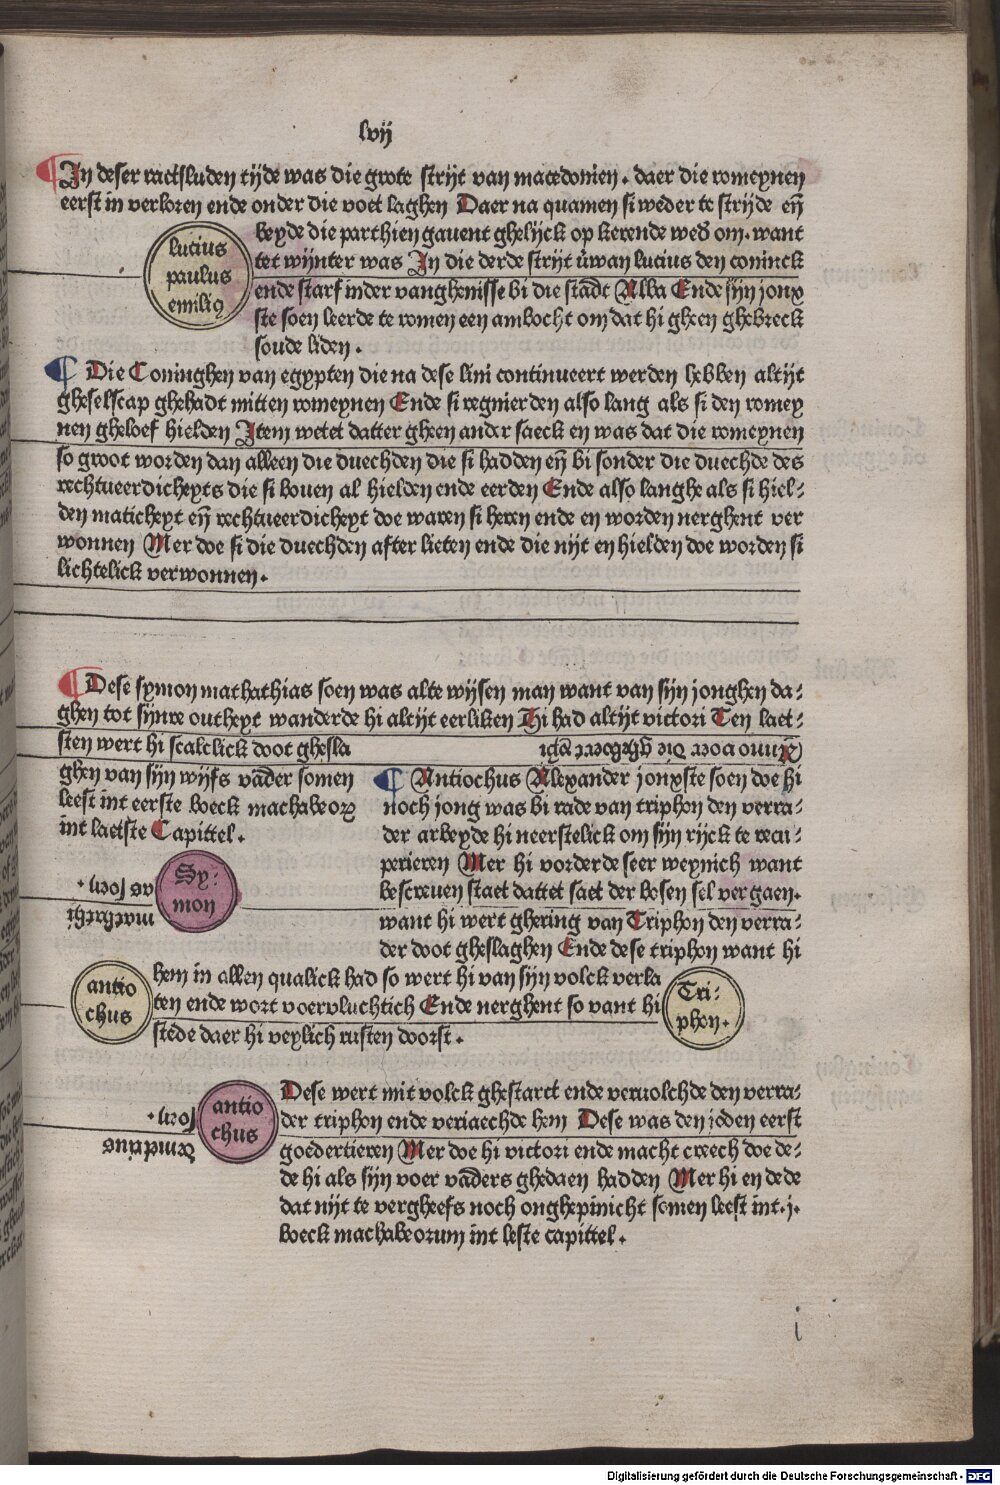 lvij
In deser tactsluden tijde was die grote strijt van macedonien. daer die romeynen
eerst in verloren ende onder die voet laghen Daer na quamen si weder te strijde eñ
beyde die parthien gauent ghelijck op kerende wed om. want
tet wijnter was In die derde strijt ůwan lucius den coninck
ende starf inder vanghenisse bi die stadt Alba Ende sijn jonx
ste soen leerde te romen een ambocht om dat hi gheen ghebreck
soude liden.
lucius
paulus
emiliꝯ
Die Coninghen van egypten die na dese lini continueert werden hebben altijt
gheselscap ghehadt mitten romeynen Ende si regnierden also lang als si den romey
nen gheloef hielden Item wetet datter gheen ander saeck en was dat die romeynen
so groot worden dan alleen die duechden die si hadden eñ bi sonder die duechde des
rechtueerdicheyts die si bouen al hielden ende eerden Ende also langhe als si hiel-
den maticheyt eñ rechtueerdicheyt doe waren si heren ende en worden nerghent ver
wonnen Mer doe si die duechden after lieten ende die nijt en hielden doe worden si
lichtelick verwonnen.
Dese symon mathathias soen was alte wijsen man want van sijn jonghen da-
ghen tot sijnre outheyt wanderde hi altijt eerliken Hi had altijt victori Ten laet-
sten wert hi scalclick doot ghesla
ghen van sijn wijfs vāder somen
leest int eerste boeck machabeoꝝ
int laetste Capittel.
Anno voer die gheboert xp̄i
Antiochus Alexander jonxste soen doe hi
noch jong was bi rade van triphon den verra-
der arbeyde hi neerstelick om sijn rijck te recu-
perieren Mer hi vorderde seer weynich want
bescreuen staet dattet saet der bosen sel vergaen.
want hi wert ghering van Triphon den verra-
der doot gheslaghen Ende dese triphon want hi
hem in allen qualick had so wert hi van sijn volck verla
ten ende wort voervluchtich Ende nerghent so vant hi
stede daer hi veylich rusten doorst.
Sy-
mon
mathathi
as soen.
antio
chus
Tri-
phon.
Dese wert mit volck ghestarct ende veruolchde den verra-
der triphon ende veriaechde hem Dese was den joden eerst
goedertieren Mer doe hi victori ende macht creech doe de-
de hi als sijn voer vaders ghedaen hadden Mer hi en dede
dat nijt te vergheefs noch onghepinicht somen leest int.j.
boeck machabeorum int leste capittel.
antio
chus
demetrius
soen.
i
Digitalisierung gefördert durch die Deutsche Forschungsgemeinschaft - DFG